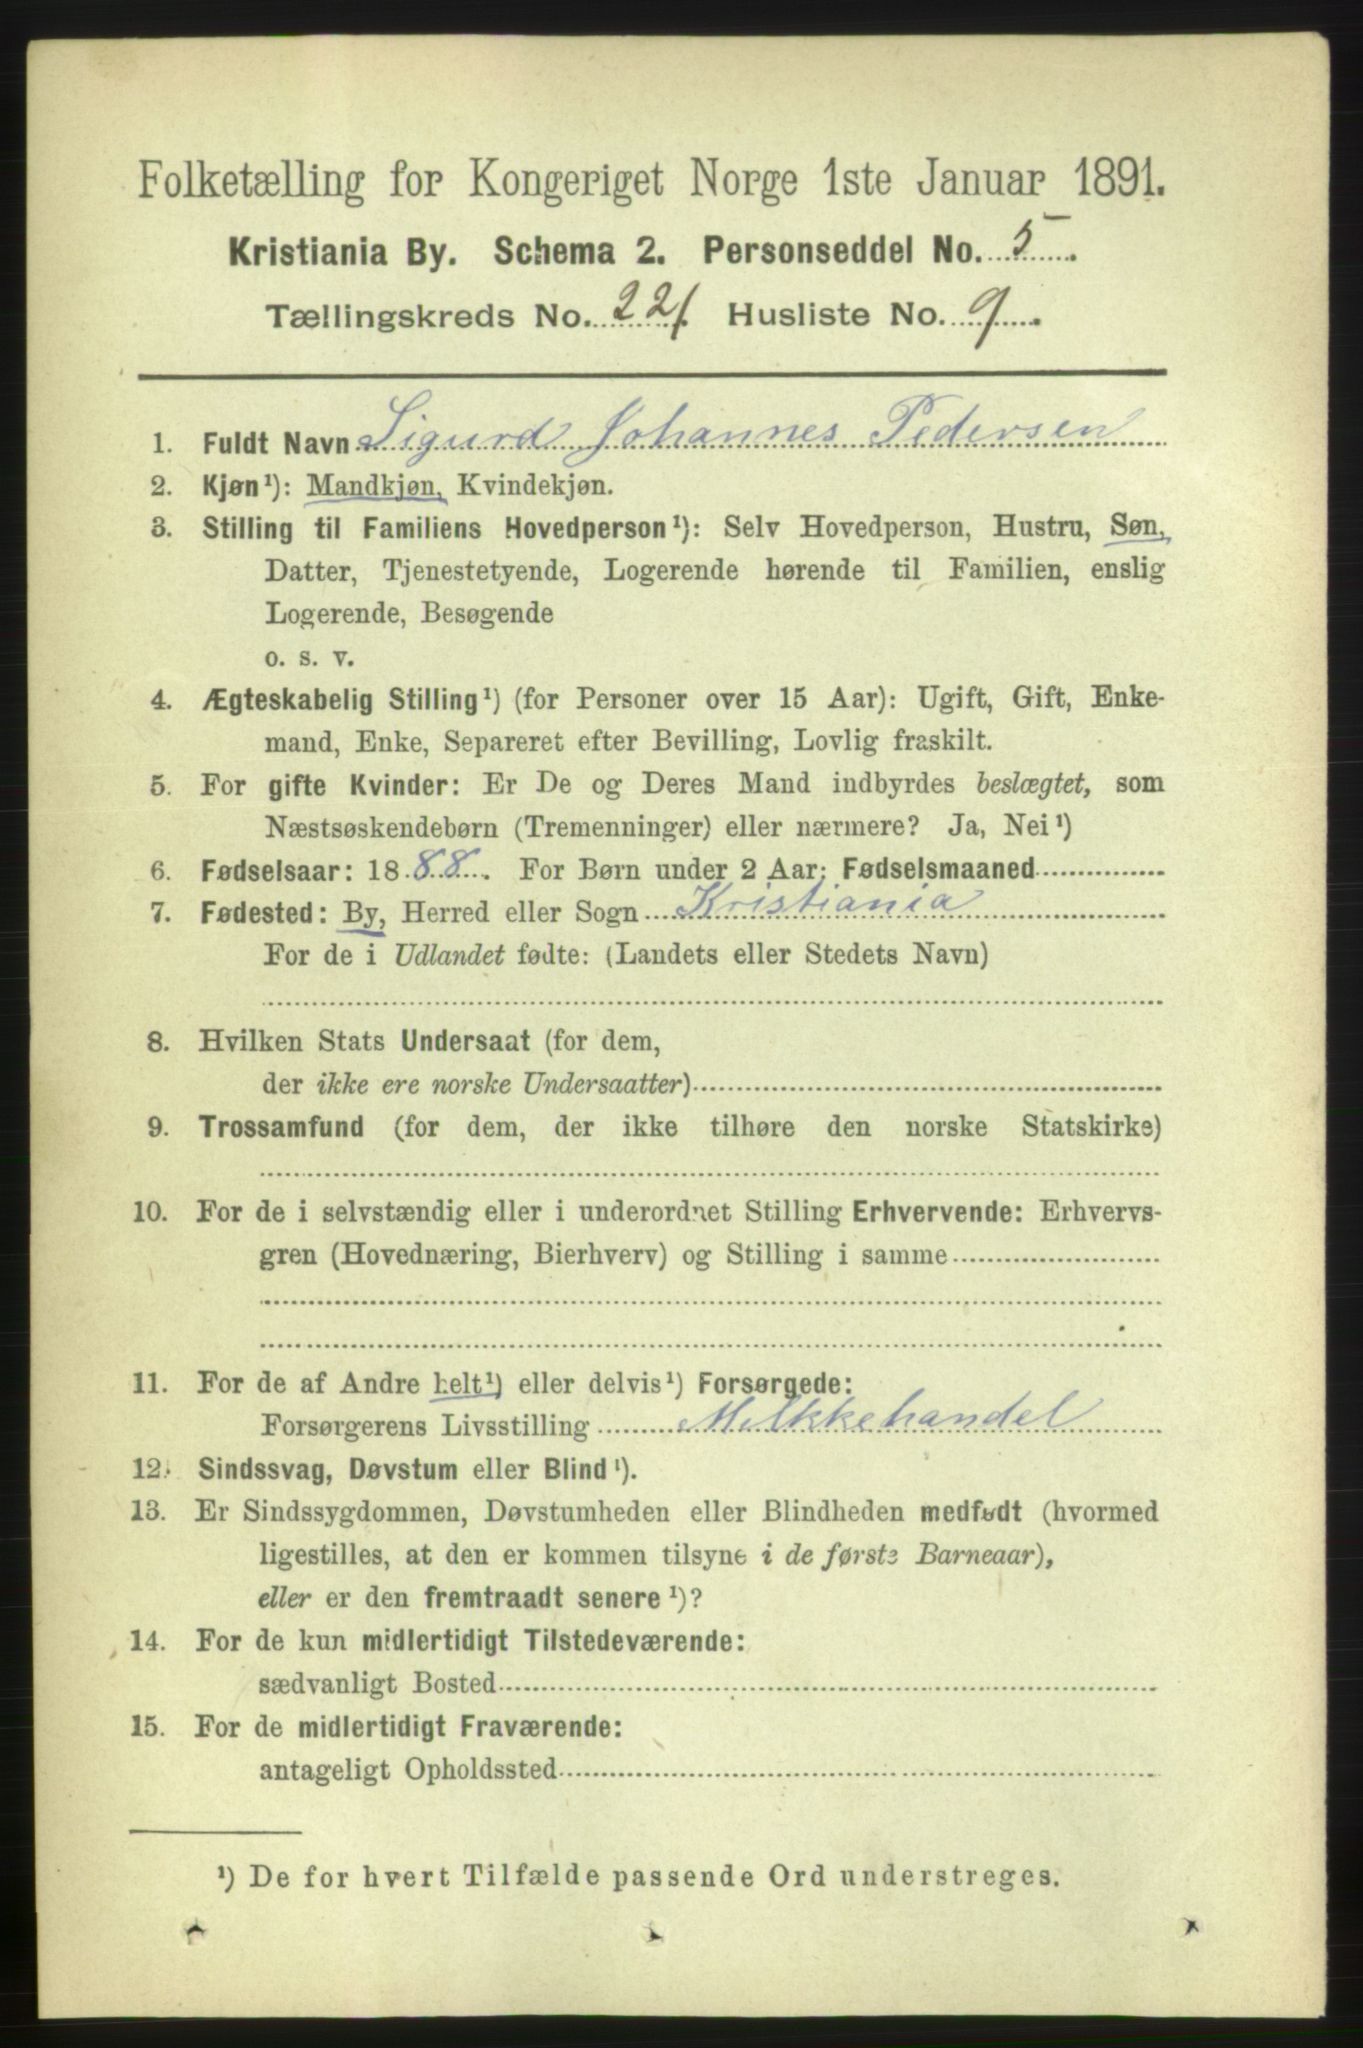 Folketælling for Kongeriget Norge 1ste Januar 1891.
Kristiania By. Schema 2. Personseddel No. 5.
Tællingskreds No. 221. Husliste No. 9.
1. Fuldt Navn Sigurd Johannes Pedersen
2. Kjøn¹): Mandkjøn, Kvindekjøn.
3. Stilling til Familiens Hovedperson¹): Selv Hovedperson, Hustru, Søn,
Datter, Tjenestetyende, Logerende hørende til Familien, enslig
Logerende, Besøgende
o. s. v.
4. Ægteskabelig Stilling¹) (for Personer over 15 Aar): Ugift, Gift, Enke-
mand, Enke, Separeret efter Bevilling, Lovlig fraskilt.
5. For gifte Kvinder: Er De og Deres Mand indbyrdes beslægtet, som
Næstsøskendebørn (Tremenninger) eller nærmere? Ja, Nei¹)
6. Fødselsaar: 1888. For Børn under 2 Aar: Fødselsmaaned
7. Fødested: By, Herred eller Sogn Kristiania
For de i Udlandet fødte: (Landets eller Stedets Navn)
8. Hvilken Stats Undersaat (for dem,
der ikke ere norske Undersaatter)
9. Trossamfund (for dem, der ikke tilhøre den norske Statskirke)
10. For de i selvstændig eller i underordnet Stilling Erhvervende: Erhvervs-
gren (Hovednæring, Bierhverv) og Stilling i samme
11. For de af Andre helt¹) eller delvis¹) Forsørgede:
Forsørgerens Livsstilling Melkkehandel
12. Sindssvag, Døvstum eller Blind¹).
13. Er Sindssygdommen, Døvstumheden eller Blindheden medfødt (hvormed
ligestilles, at den er kommen tilsyne i de første Barneaar),
eller er den fremtraadt senere¹)?
14. For de kun midlertidigt Tilstedeværende:
sædvanligt Bosted
15. For de midlertidigt Fraværende:
antageligt Opholdssted
¹) De for hvert Tilfælde passende Ord understreges.